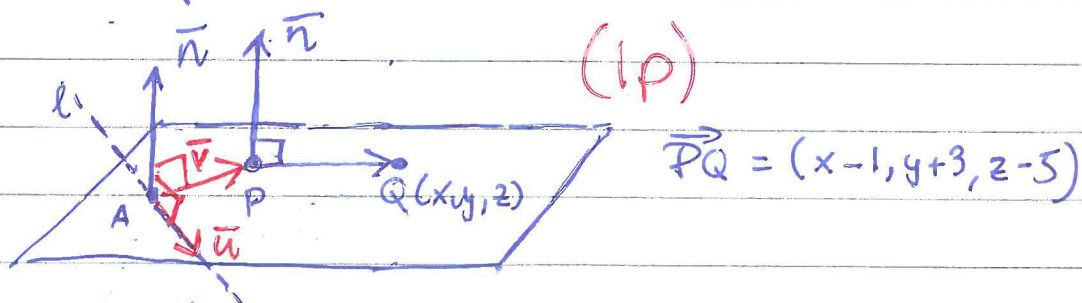 n̅ n̅
(1p)
l
v̅
A P Q(x,y,z)
u̅
P⃗Q⃗ = (x-1, y+3, z-5)